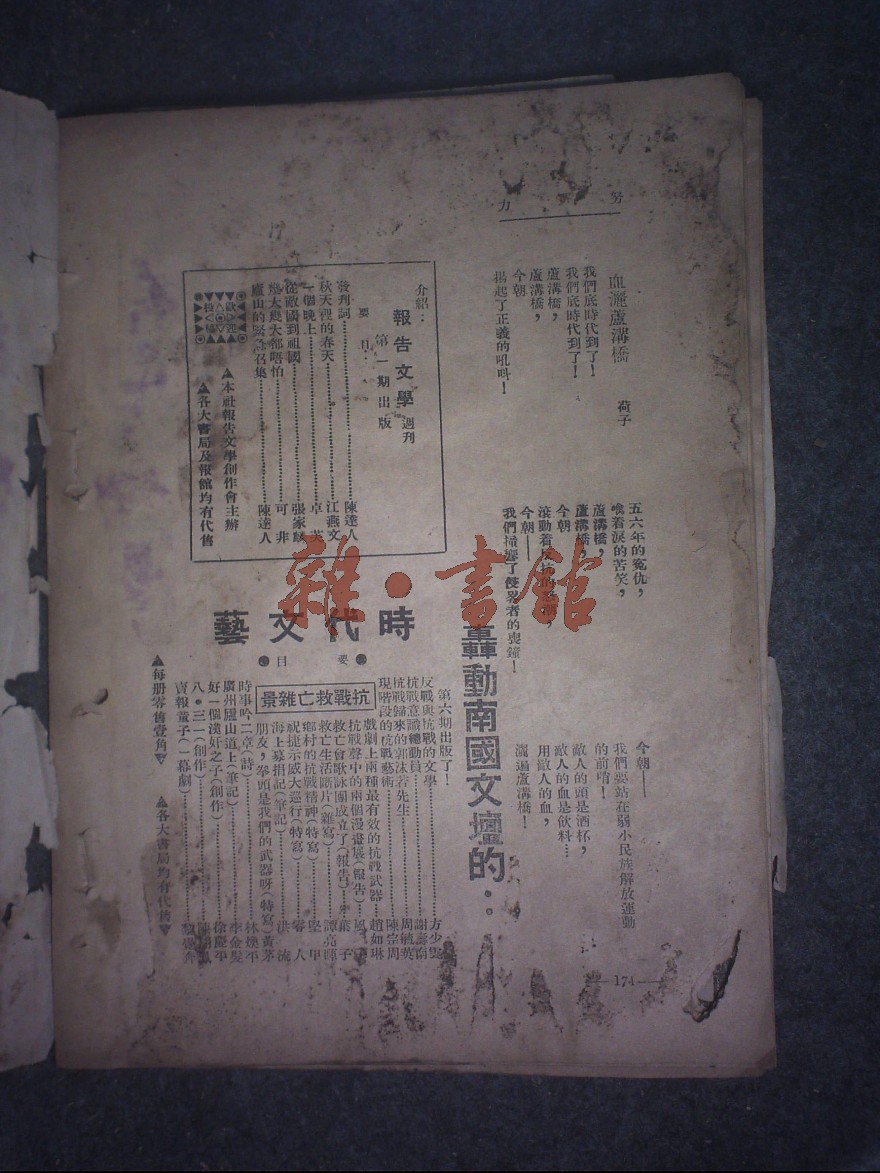 努力
血灑蘆溝橋
荷子
我們底時代到了！
我們底時代到了！
蘆溝橋，
蘆溝橋，
今朝
揚起了正義的吼呌！
五六年的冤仇，
噙着淚的苦笑，
蘆溝橋，
蘆溝橋，
今朝
滾動着反抗的
今朝——
我們撞響了侵畧者的喪鐘！
今朝——
我們要站在弱小民族解放運動
的前哨！
敵人的頭是酒杯，
敵人的血是飲料…
用敵人的血，
灑過蘆溝橋！
174
轟動南國文壇的：
時代文藝
要目
第六期出版了！
反戰與抗戰的文學 方少雲
抗戰意識總動員
抗戰歸來的郭沫若先生 周毓英
現階段的抗戰藝術 陳宗周
抗戰救亡雜景
戲劇上兩種最有效的抗戰武器 趙如琳
抗戰聲中的兩個漫畫展（報告）
救亡會歌詠團成立了（報告） 葉子
救亡生活斷片（雜寫） 譚亮師
鄉村的抗戰精神（特寫） 堅甲
祝捷示威大巡行（特寫） 零人
海上募捐記（筆記） 洪流
朋友，拳頭是我們的武器呀（特寫） 黃茅
時事吟二章（詩） 林煥平
廣州廬山道上（筆記） 李金髮
好一個漢奸之子（創作） 徐慶平
八・三一（創作）
賣報童子（一幕劇）
▲每册零售壹角▼
▲各大書局均有代售▼
介紹：
報告文學 週刊
第一期出版
要目：
發刊詞 陳達人
秋天裡的春天 江燕文
一個晚上 卓芙
從敵國到祖國 張家麟
幾大幾大都唔怕 可非
廬山的緊急召集 陳達人
歡迎投稿
▲本社報告文學創作會主辦
▲各大書局及報館均有代售
雜・書館